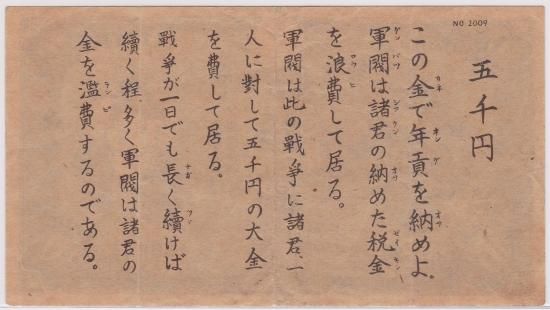 NO 2009
五千円
この金で年貢を納めよ。
軍閥は諸君の納めた税金
を浪費して居る。
軍閥は此の戰爭に諸君一
人に對して五千円の大金
を費して居る。
戰爭が一日でも長く續けば
續く程多く軍閥は諸君の
金を濫費するのである。